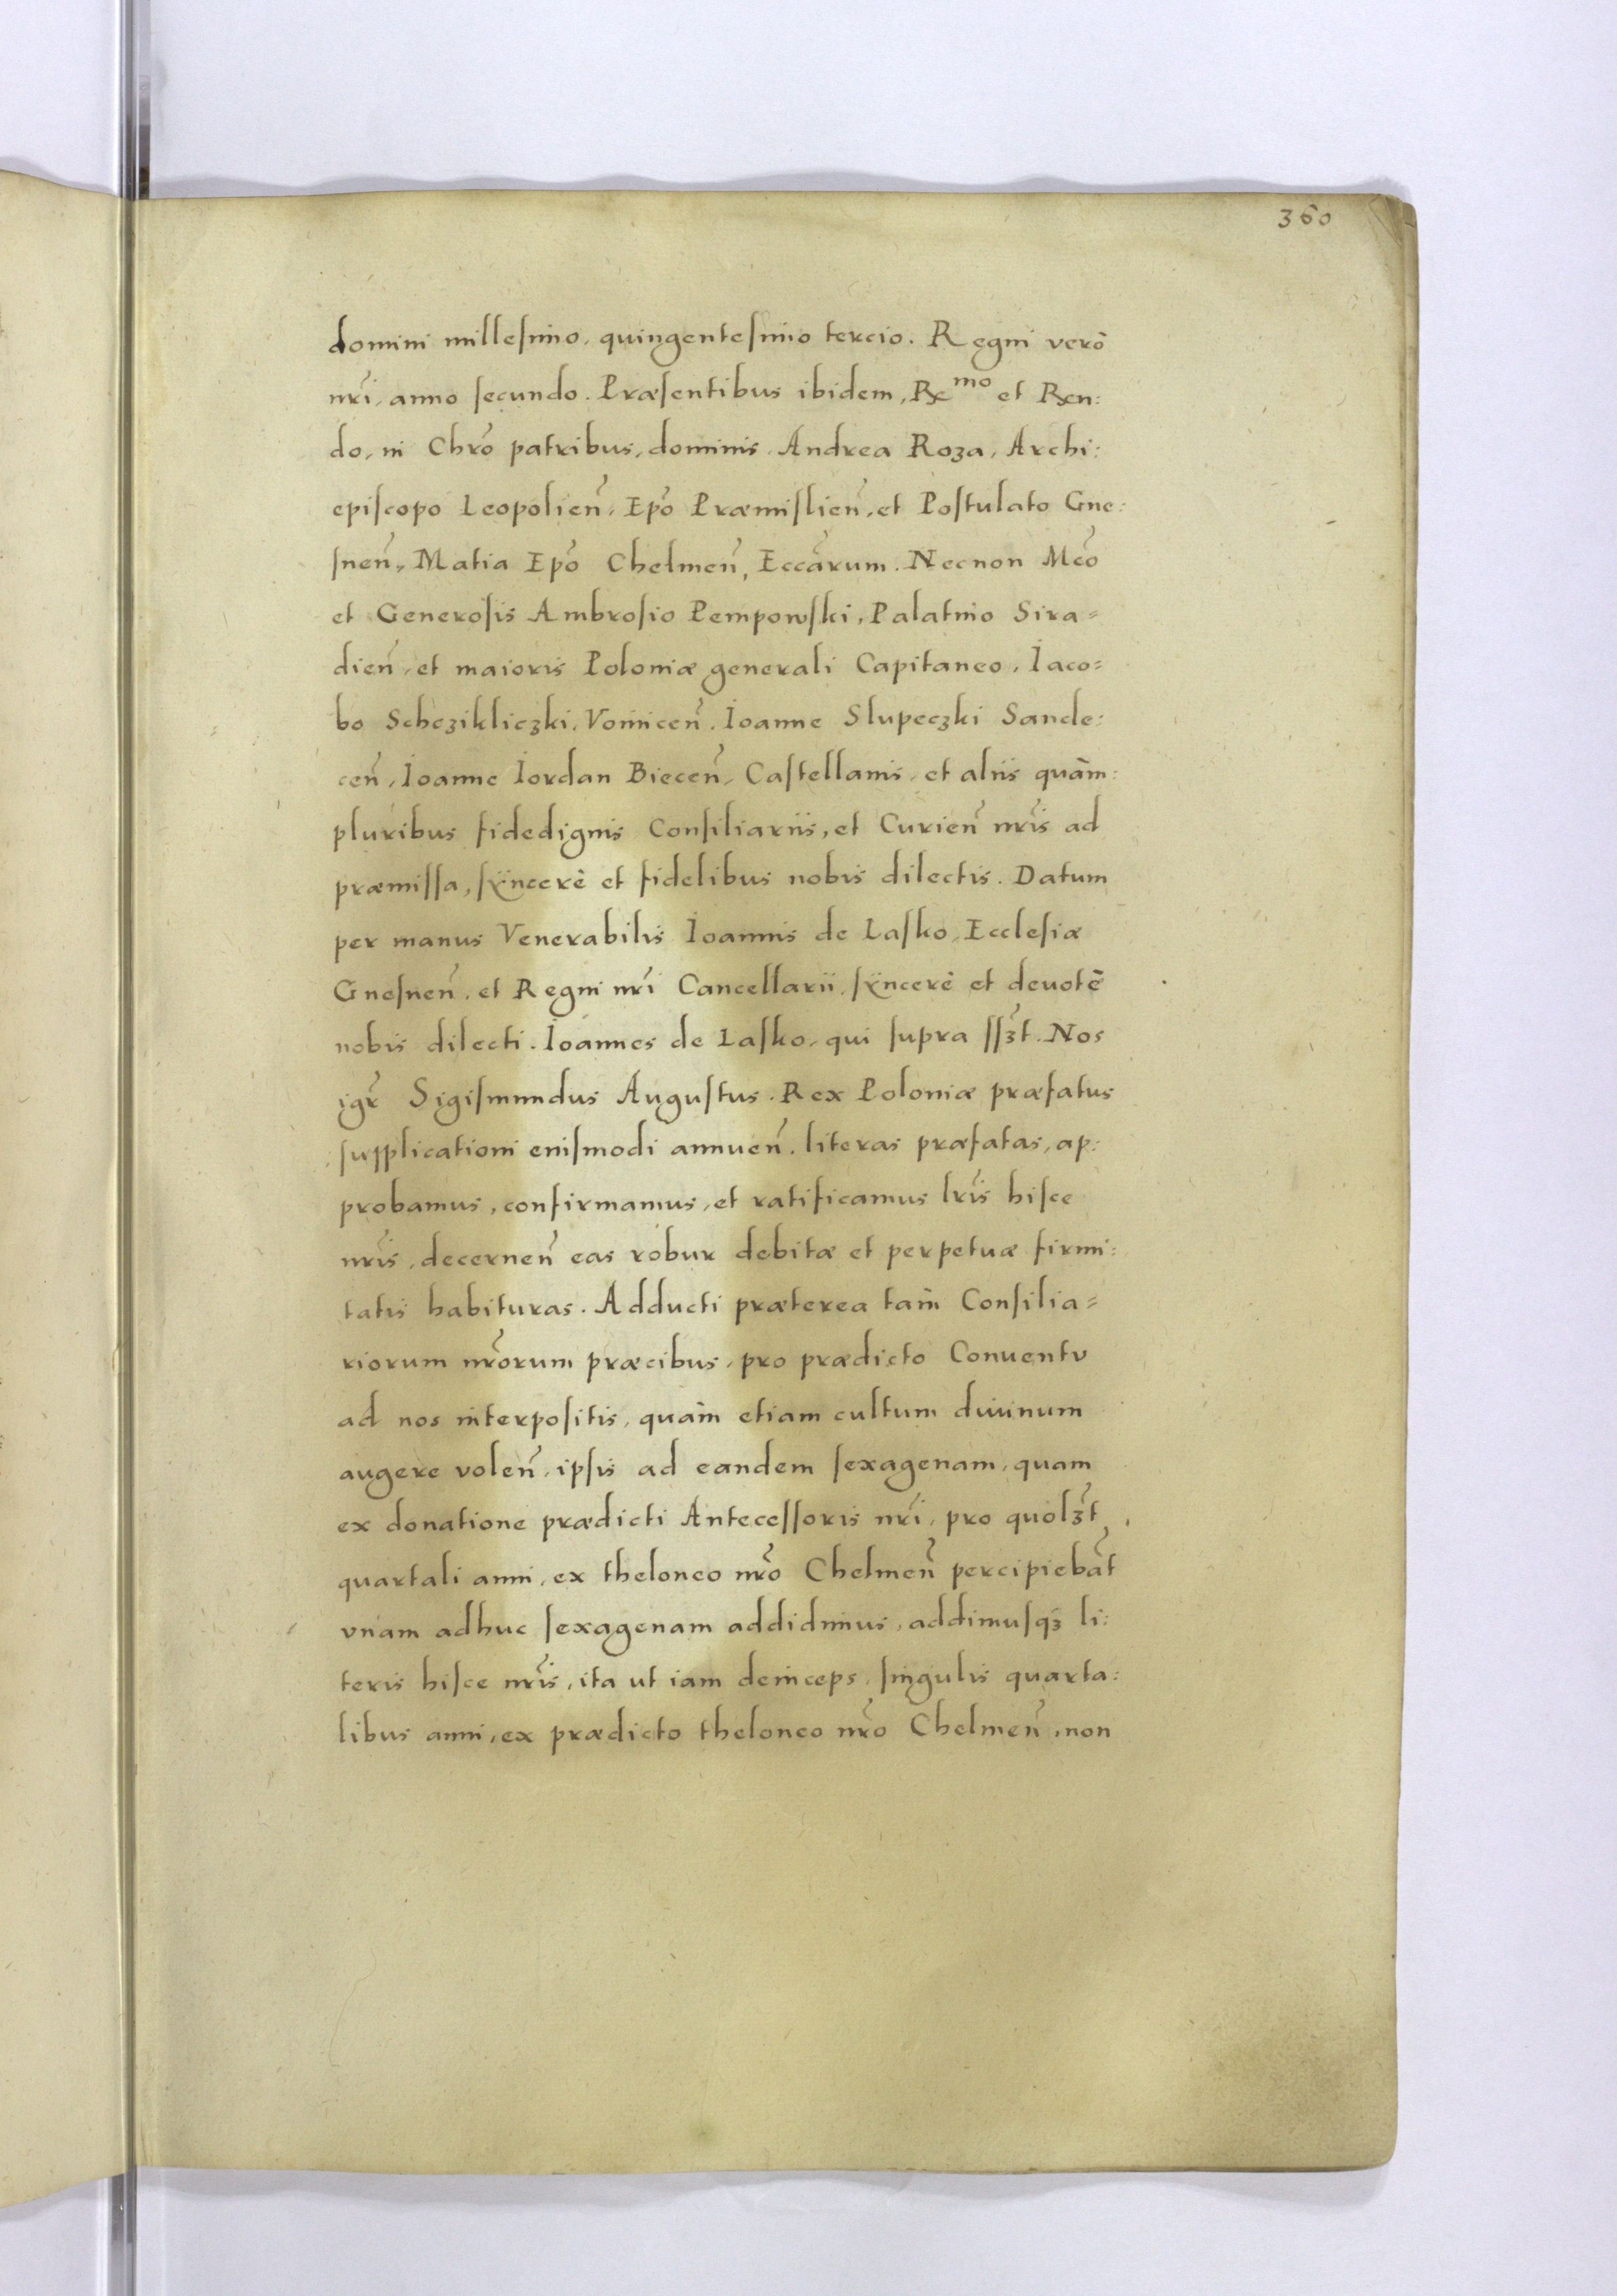 360
domini millesimo, quingentesimo tercio. Regni verò
nrī, anno secundo. Præsentibus ibidem, Rx^mo et Rxn:
do, in Chrō patribus, dominis, Andrea Roza, Archi:
episcopo Leopolien̄, Ep̄o Præmislien̄, et Postulato Gne:
snen̄, Matia Ep̄o Chelmen̄, Eccārum. Necnon Mcō
et Generosis Ambrosio Pempowski, Palatino Sira=
dien̄, et maioris Poloniæ generali Capitaneo, Iaco=
bo Schczikliczki, Voinicen̄. Ioanne Slupeczki Sande:
cen̄, Ioanne Iordan Biecen̄, Castellanis, et aliis quàm:
pluribus fidedignis Consiliariis, et Curien̄ nrīs ad
præmissa, sÿncerè et fidelibus nobis dilectis. Datum
per manus Venerabilis Ioannis de Lasko, Ecclesiæ
Gnesnen̄, et Regni nrī Cancellarii, sÿncerè et deuotè
nobis dilecti. Ioannes de Lasko, qui supra ssʒ̄t. Nos
igr̄ Sigismundus Augustus. Rex Poloniæ præfatus
supplicationi eiusmodi annuen̄. literas præfatas, ap:
probamus, confirmamus, et ratificamus lrīs hisce
nrīs, decernen̄ eas robur debitæ et perpetuæ firmi:
tatis habituras. Adducti præterea tam̀ Consilia=
riorum nrōrum præcibus, pro prædicto Conuentu
ad nos interpositis, quàm etiam cultum diuinum
augere volen̄, ipsis ad eandem sexagenam, quam
ex donatione prædicti Antecessoris nrī, pro quolʒ̄t
quartali anni, ex theloneo nrō Chelmen̄ percipiebāt
vnam adhuc sexagenam addidimus, addimusqʒ li:
teris hisce nrīs, ita ut iam deinceps, singulis quarta:
libus anni, ex prædicto theloneo nrō Chelmen̄, non